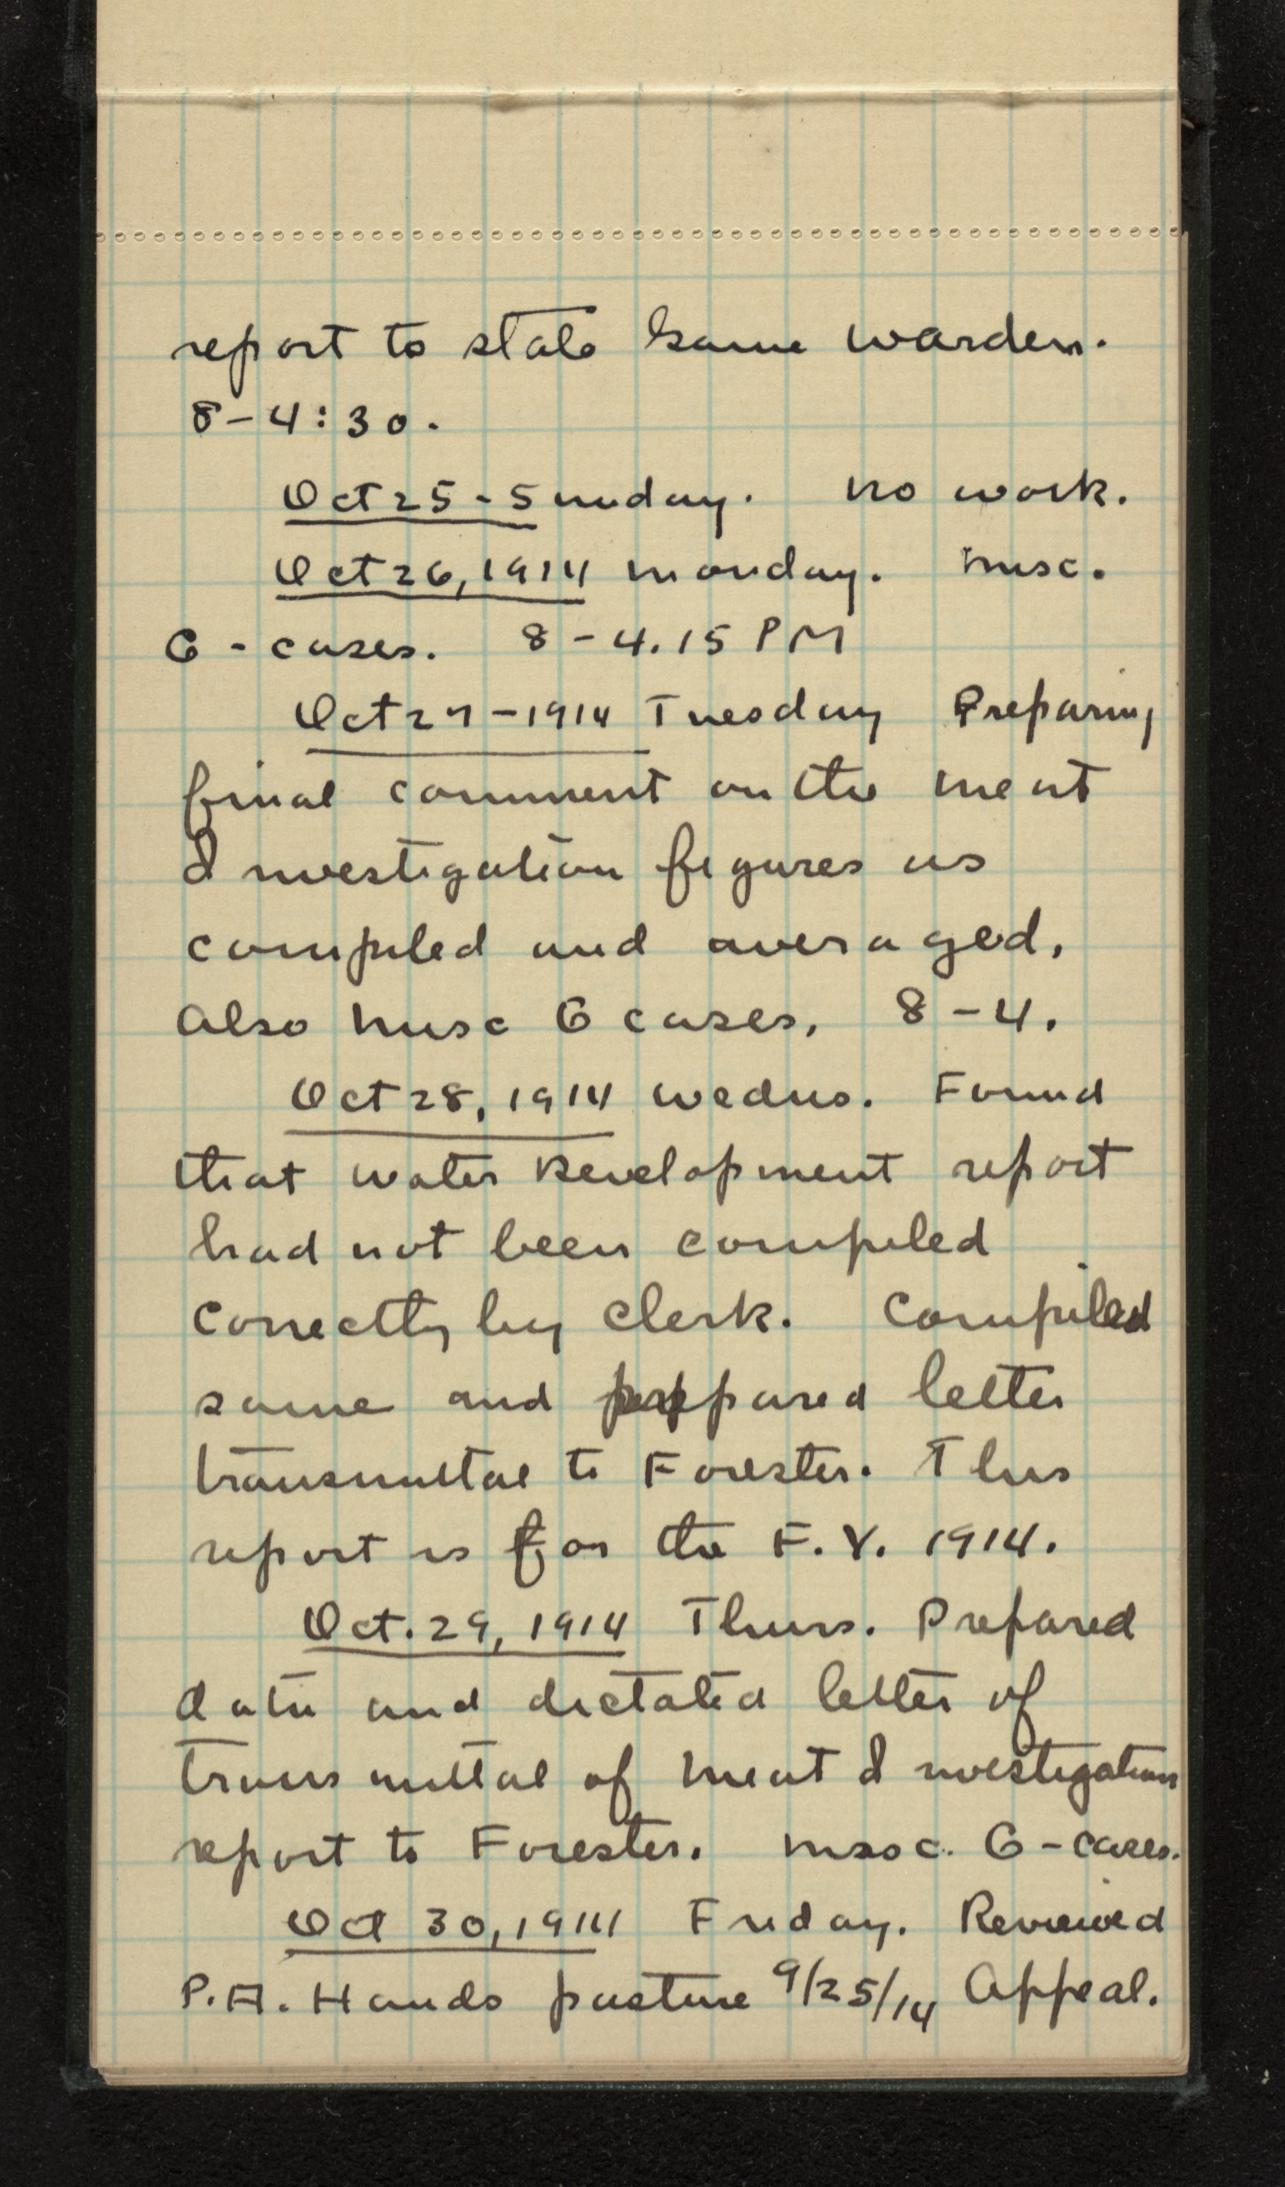 report to state Game Warden.
8-4:30.
Oct 25 - Sunday. No work.
Oct 26, 1914 Monday. Misc.
G - cases. 8-4.15 PM
Oct 27-1914 Tuesday Preparing
final comment on the meat
Investigation figures as
compiled and averaged,
Also Misc G cases. 8-4.
Oct 28, 1914 Wednes. Found
that water Development report
had not been compiled
correctly by Clerk. Compiled
same and prepared letter
transmittal to Forester. This
report is for the F.Y. 1914.
Oct. 29, 1914 Thurs. Prepared
data and dictated letter of
transmittal of Meat Investigation
report to Forester. Misc. G-cases.
Oct 30, 1914 Friday. Reviewed
P.A. Hands pasture 9/25/14 Appeal.